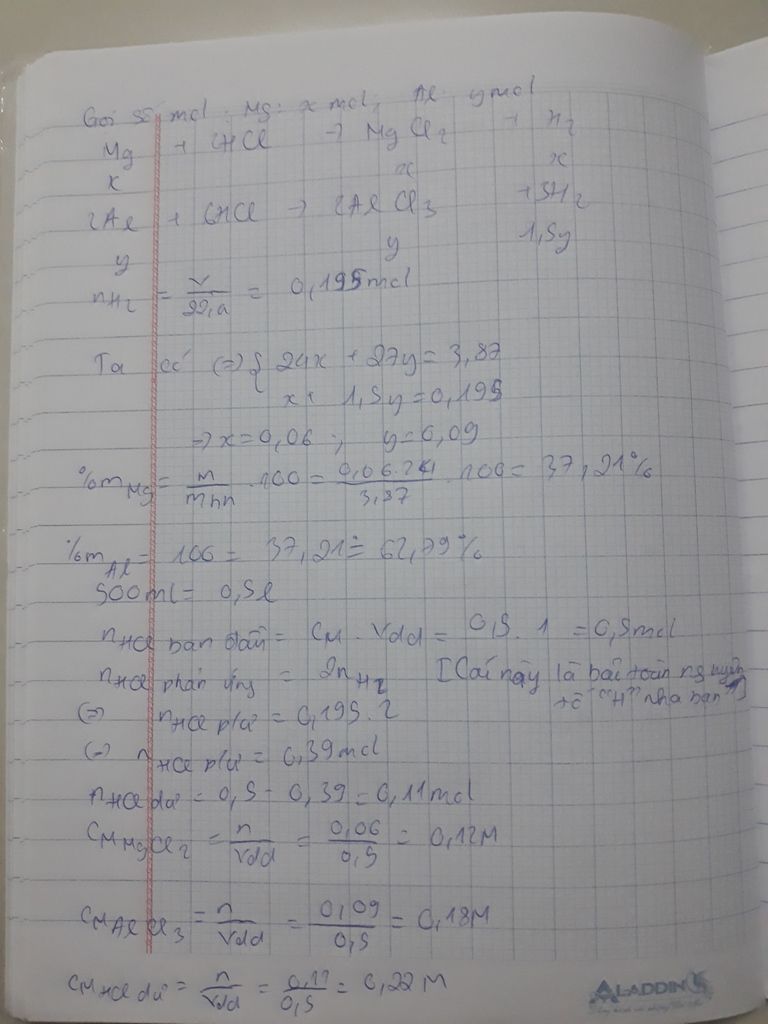 Gọi số mol Mg: x mol; Al y mol
Mg + 2HCl → MgCl2 + H2
x x x
2Al + 6HCl → 2AlCl3 + 3H2
y y 1,5y
nH2 = V/22,4 = 0,195 mol
Ta có (=) { 24x + 27y = 3,87
x + 1,5y = 0,195
→ x = 0,06 ; y = 0,09
%mMg = m/mhh . 100 = 0,06.24/3,87 . 100 = 37,21%
%mAl = 100 = 37,21 = 62,79%
500ml = 0,5l
nHCl ban đầu = CM . Vdd = 0,5 . 1 = 0,5 mol
nHCl phản ứng = 2nH2 [Cái này là bảo toàn nguyên
tố "H" nha bạn]
(=) nHCl p/ư = 0,195.2
(=) nHCl p/ư = 0,39 mol
nHCl dư = 0,5 - 0,39 = 0,11 mol
CM MgCl2 = n/Vdd = 0,06/0,5 = 0,12M
CM AlCl3 = n/Vdd = 0,09/0,5 = 0,18M
CM HCl dư = n/Vdd = 0,11/0,5 = 0,22M
ALADDIN